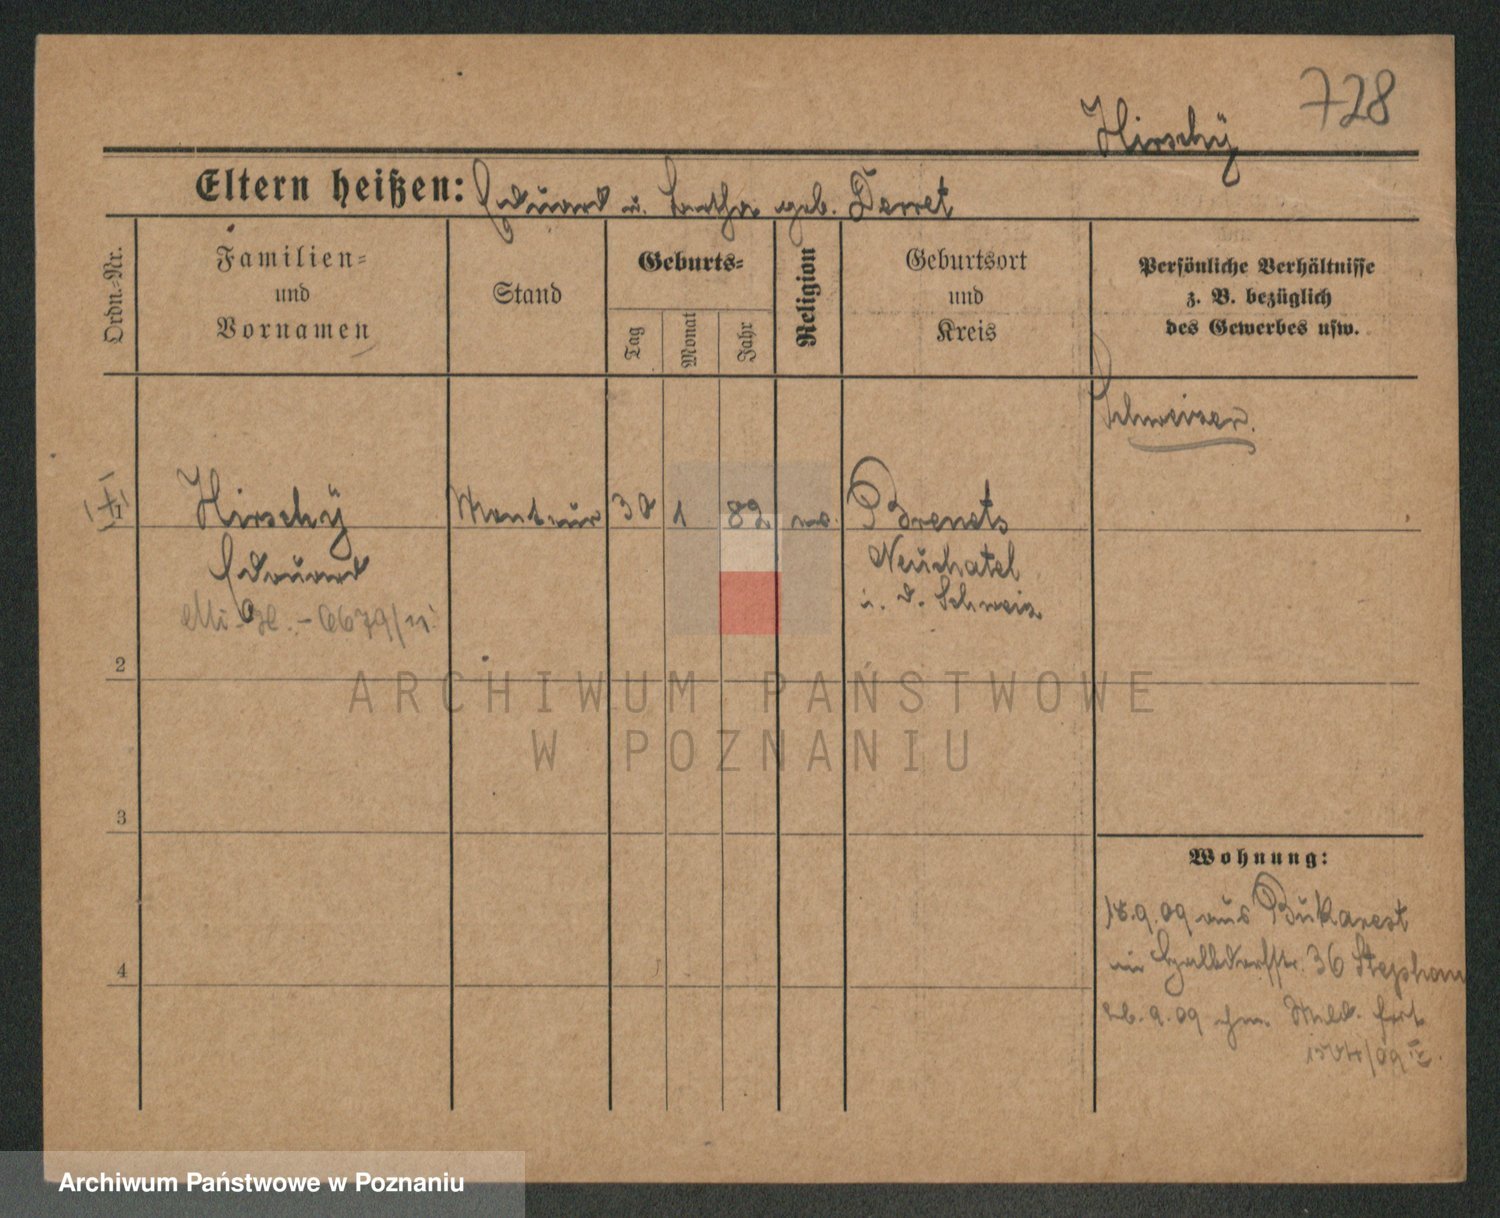 728
Hirschÿ
Eltern heißen: Eduard u. Bertha geb. Perret
Ordn.-Nr.
Familien-
und
Vornamen
Stand
Geburts-
Tag
Monat
Jahr
Religion
Geburtsort
und
Kreis
Persönliche Verhältnisse
z. B. bezüglich
des Gewerbes usw.
Schweizer.
1
Hirschÿ Monteur 30 1 82 Brenets
Edouard Neuchatel
i. d. Schweiz
2
3
4
Wohnung:
18.9.09 aus Bukarest
Halbdorfstr. 36 Stephan
9.09 Meld. fort
ARCHIWUM PAŃSTWOWE
W POZNANIU
Archiwum Państwowe w Poznaniu